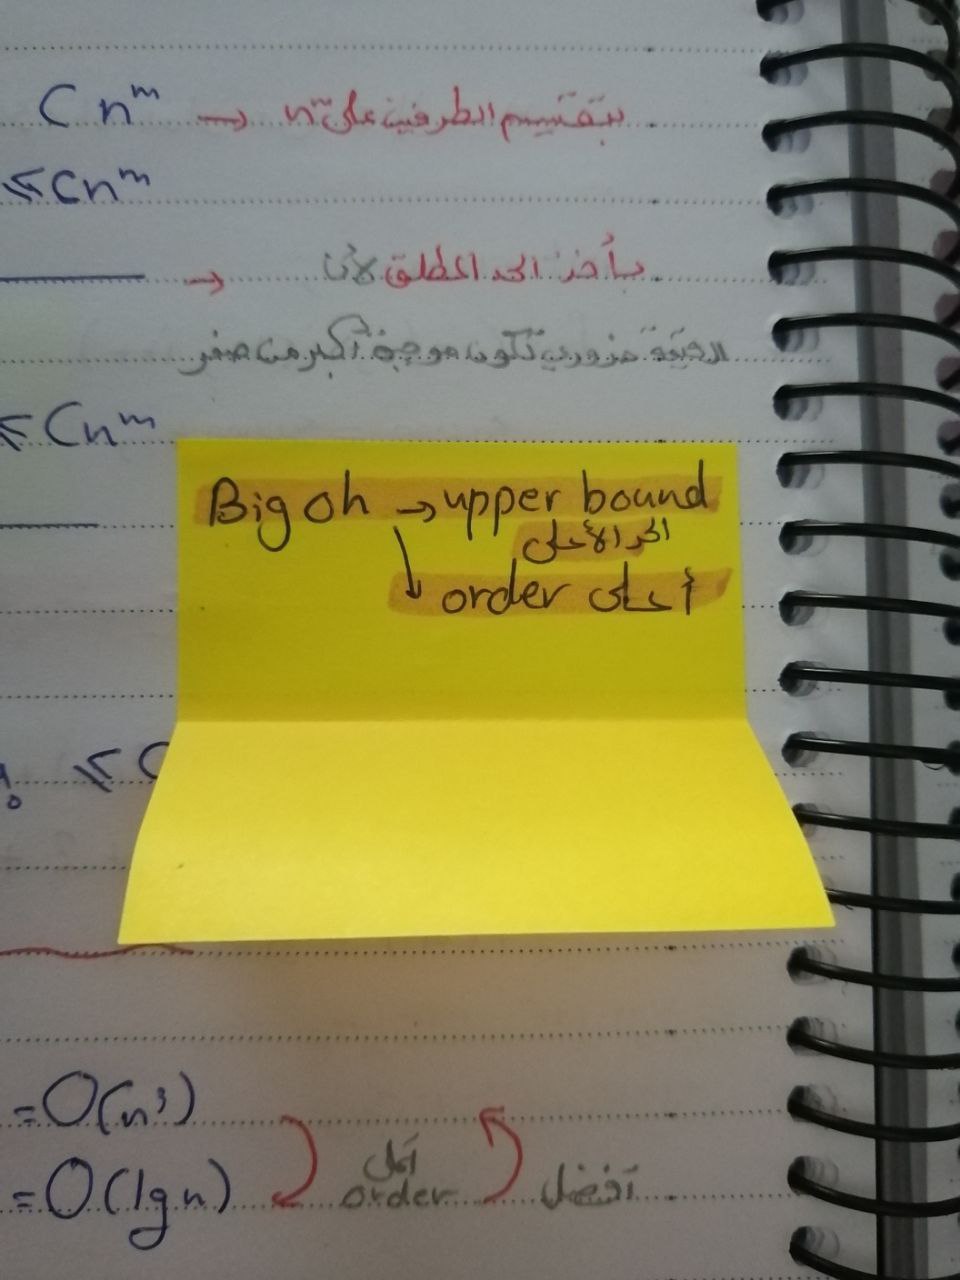 Cn^m → بتقسيم الطرفين على n^m
≤ Cn^m
→ بأخذ الحد المطلق لأن
القيمة ضروري تكون موجبة أكبر من صفر
≤ Cn^m
Big oh → upper bound
الحد الأعلى
↓ order أعلى
≤ C
= O(n³)
أقل
= O(lg n) order أفضل